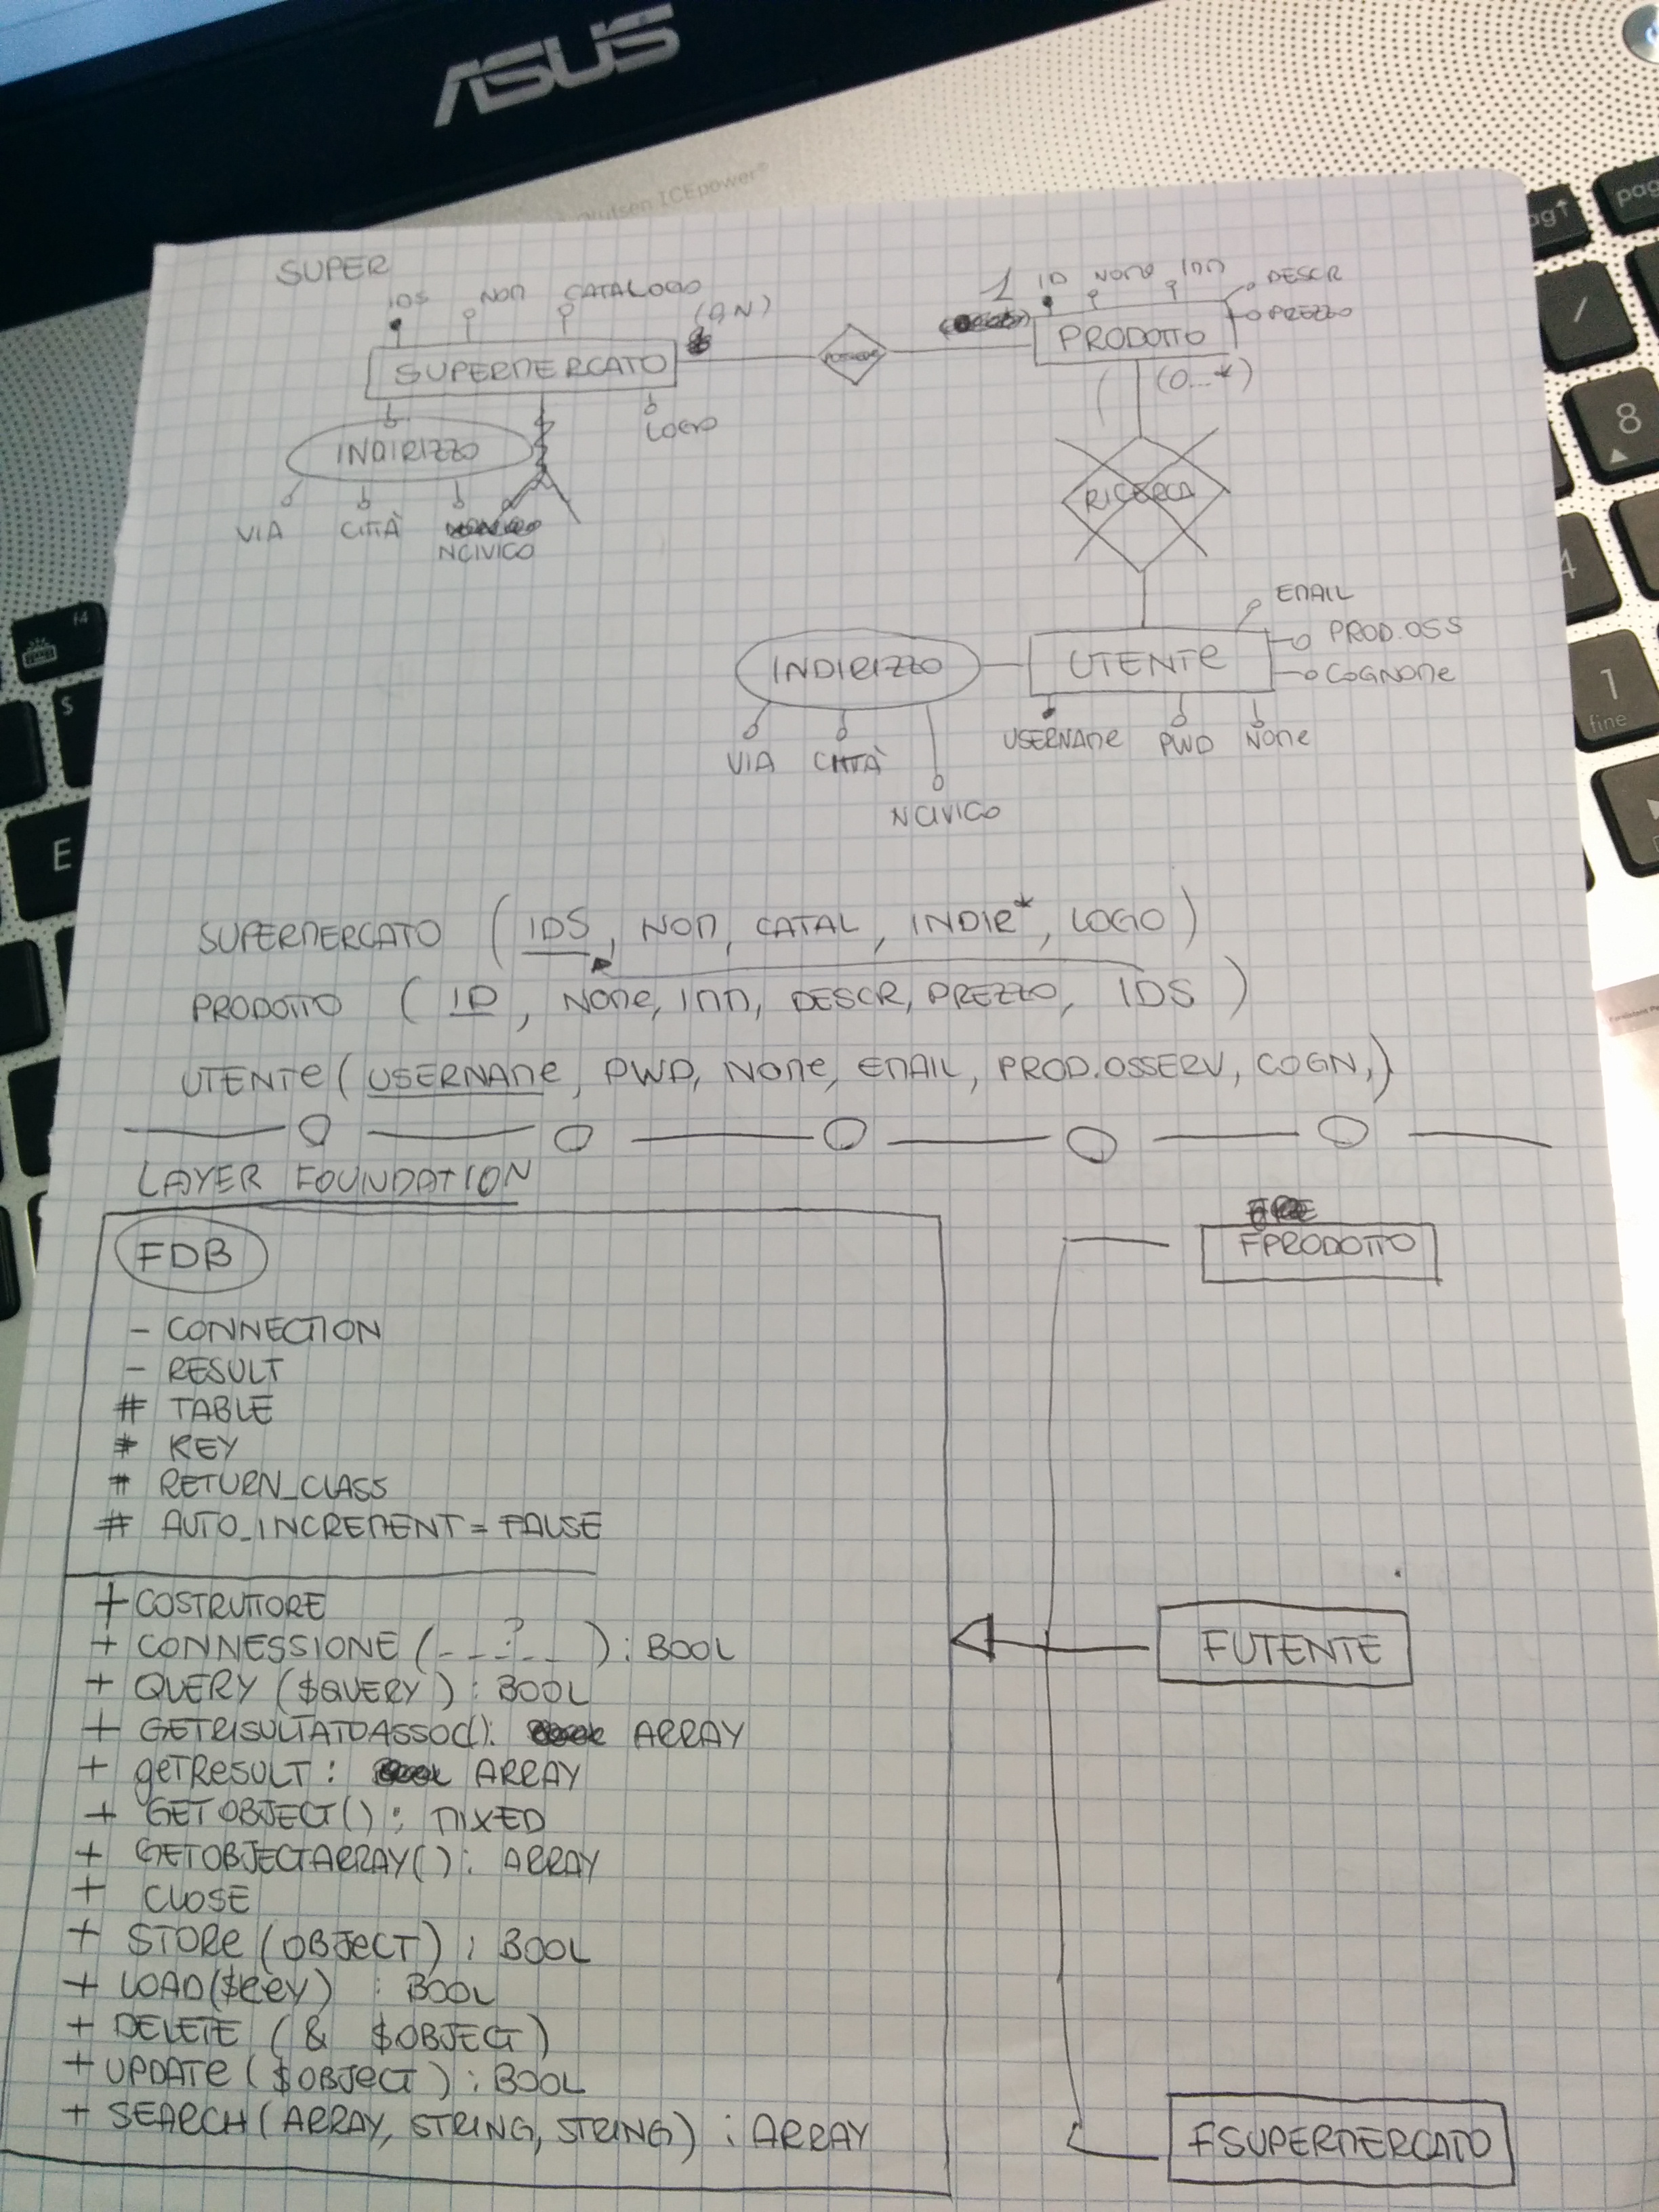 ASUS
ICEpower®
pag↑
pag
f4
S
E
/
8
4
1
fine
SUPER
IDS NOM CATALOGO
(0,N)
1 ID NOME IMM DESCR
PREZZO
SUPERMERCATO
PRODOTTO
( (0...*)
INDIRIZZO
LOGO
RICERCA
VIA CITTÀ
NCIVICO
EMAIL
PROD.OSS
INDIRIZZO UTENTE
COGNOME
USERNAME PWD NOME
VIA CITTÀ
NCIVICO
SUPERMERCATO (IDS, NOM, CATAL, INDIR*, LOGO)
PRODOTTO (ID, NOME, IMM, DESCR, PREZZO, IDS)
UTENTE (USERNAME, PWD, NOME, EMAIL, PROD.OSSERV, COGN,)
LAYER FOUNDATION
FDB
FPRODOTTO
- CONNECTION
- RESULT
# TABLE
# KEY
# RETURN_CLASS
# AUTO_INCREMENT = FALSE
+ COSTRUTTORE
+ CONNESSIONE (_ _ ? _ _) : BOOL
FUTENTE
+ QUERY ($QUERY) : BOOL
+ GETRISULTATOASSOC(): ARRAY
+ getResult : ARRAY
+ GETOBJECT() : MIXED
+ GETOBJECTARRAY() : ARRAY
+ CLOSE
+ STORE (OBJECT) : BOOL
+ LOAD($KEY) : BOOL
+ DELETE (& $OBJECT)
+ UPDATE ($OBJECT) : BOOL
+ SEARCH (ARRAY, STRING, STRING) : ARRAY
FSUPERMERCATO